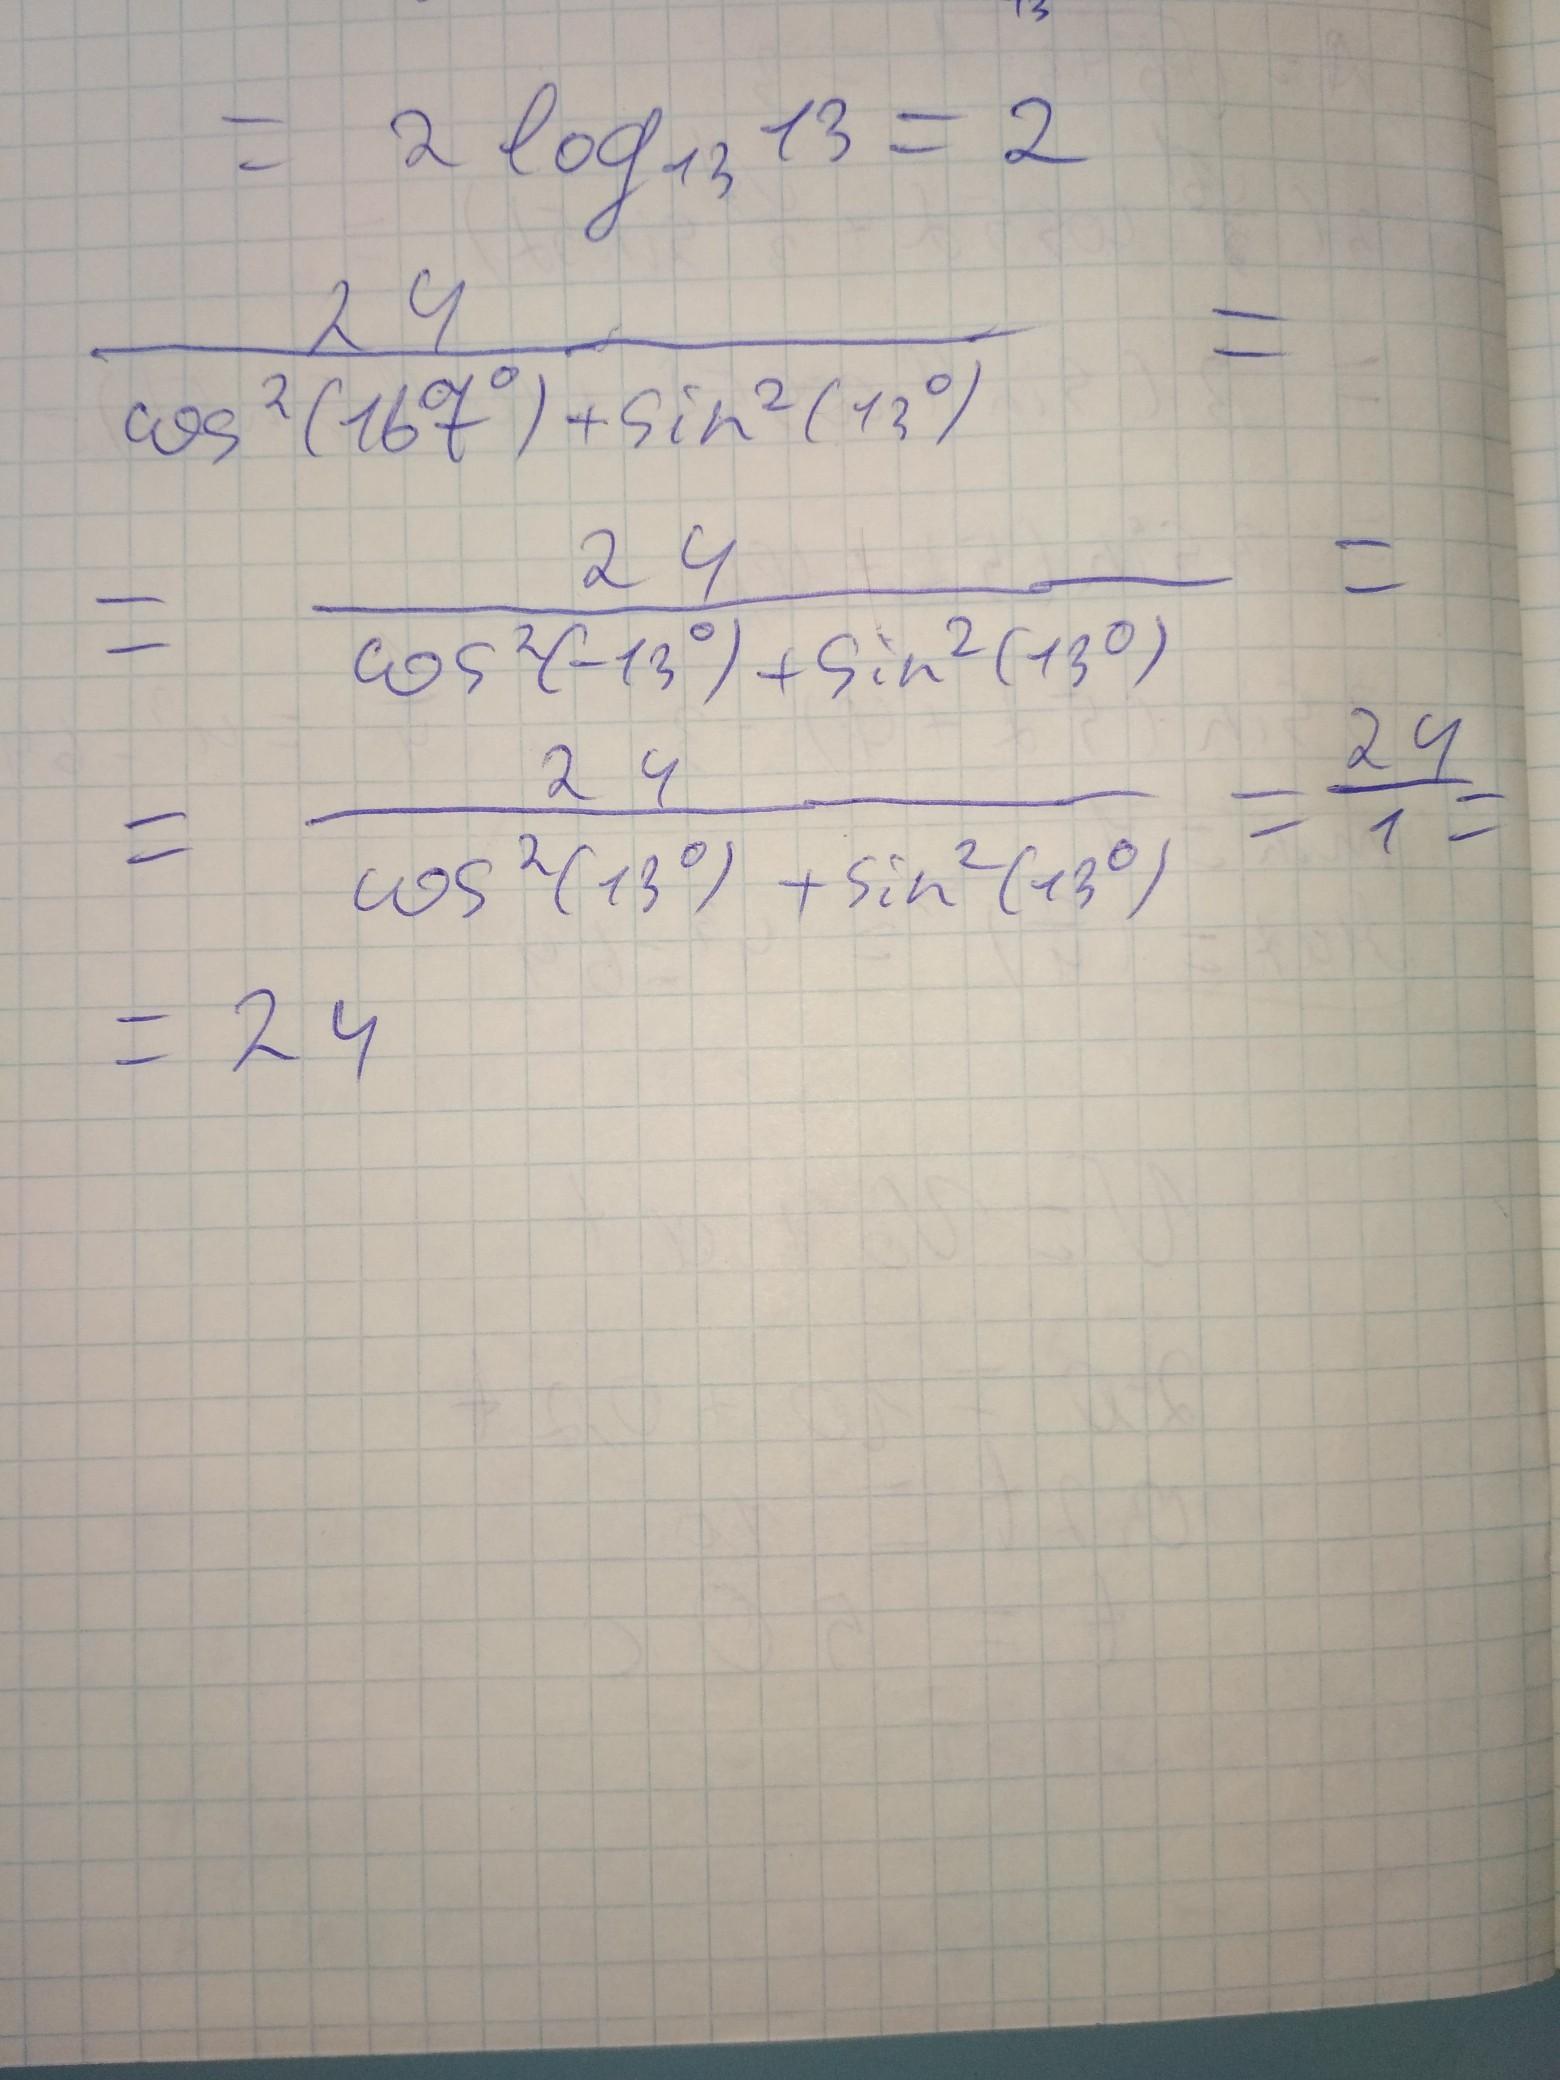 13
= 2 log₁₃ 13 = 2
24
cos²(167°)+sin²(13°) =
= 24 =
cos²(-13°)+sin²(13°)
= 24 = 24
cos²(13°) +sin²(13°) 1 =
= 24